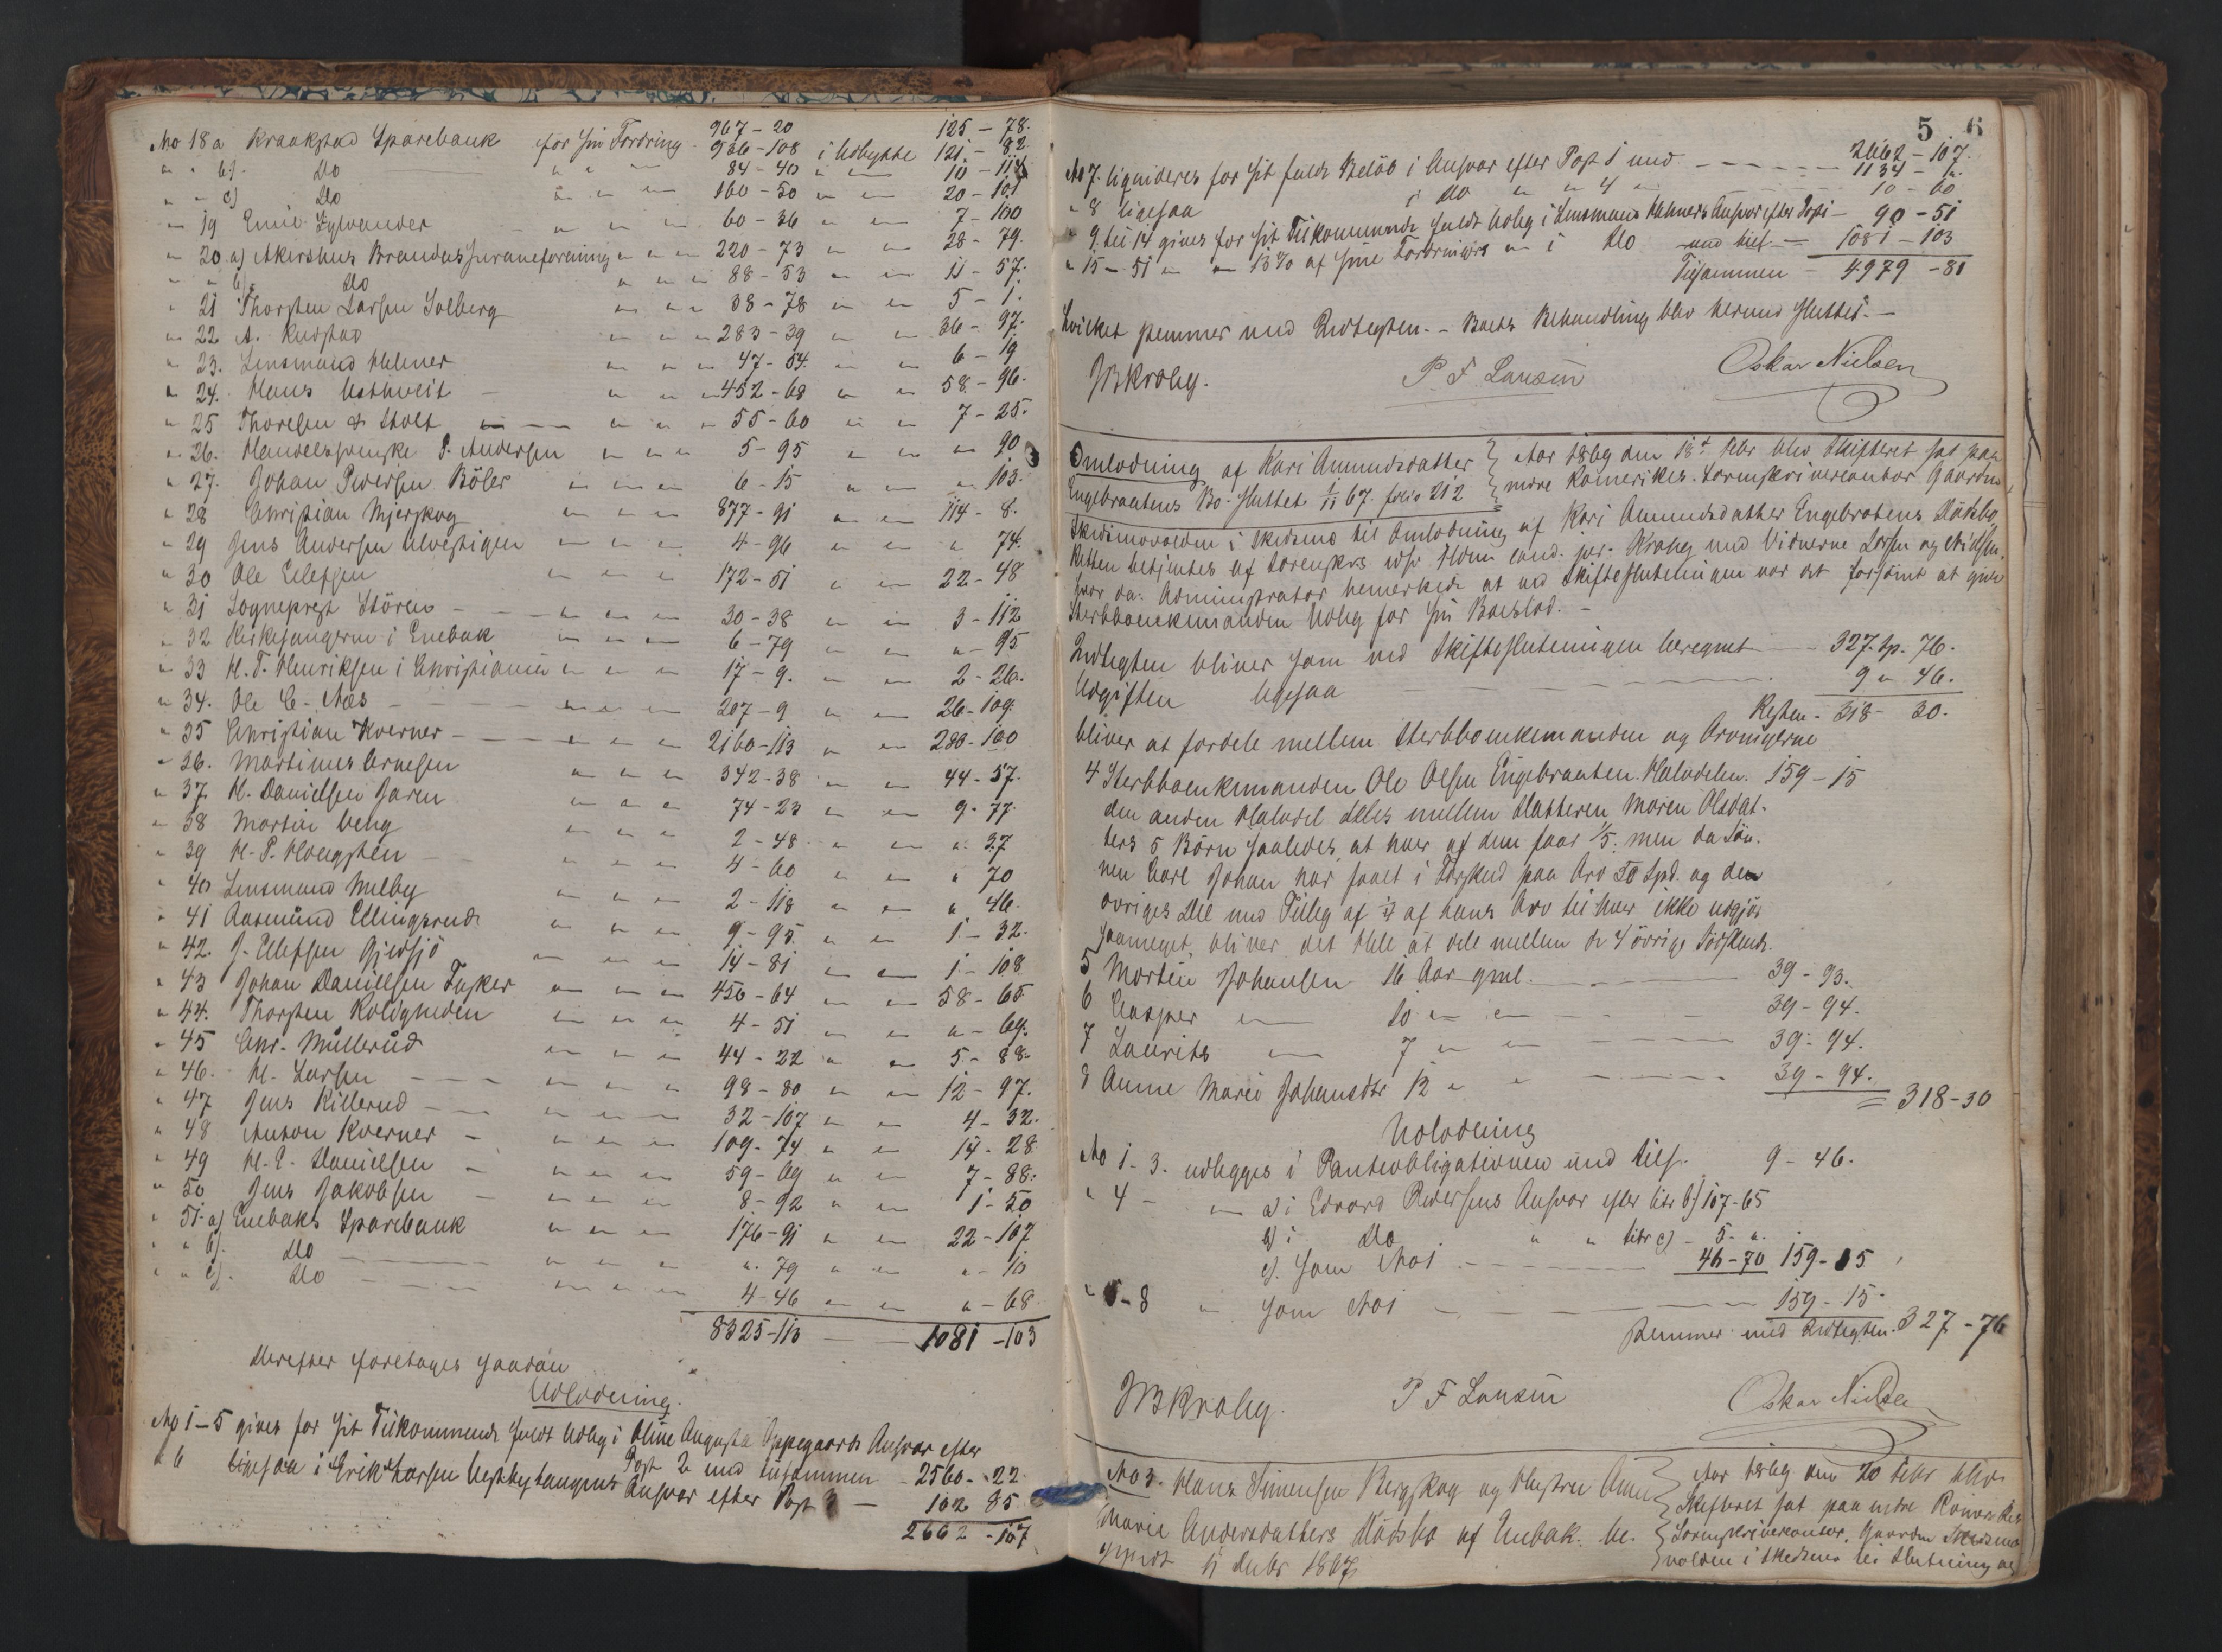 967 - 20 125 - 78.
No 18 a Kraakstad Sparebank for sin Fordring 936 - 108 i Udbytte 121 - 82
" " b). Do " " " 84 - 40 " " 10 - 118
" " c) Do " " " 160 - 50 " " 20 - 101
" 19 Emil Sylvander " " " 60 - 36 " " 7 - 100
" 20 a) Akershus Brandassuranceforening " " " 220 - 73 " " 28 - 79.
" " b) Do " " " 88 - 53 " " 11 - 57.
" 21 Thorsten Larsen Solberg " " " 38 - 78 " " 5 - 1.
" 22 A. Rustad " " " 283 - 39 " " 36 - 97.
" 23. Lensmand Hafner " " " 47 - 54. " " 6 - 19
" 24. Hans Asthveit " " " 452 - 68 " " 58 - 96.
" 25 Thoresen & Holt " " " 55 - 60 " " 7 - 25.
" 26. Handelssvenske P. Andersen " " " 5 - 95 " " " 90
" 27. Johan Pedersen Böler " " " 6 - 15 " " " 103.
" 28 Christian Mjerskog " " " 877 - 91 " " 114 - 8.
" 29 Jens Andersen Ulvestigen " " " 4 - 96 " " " 74.
" 30 Ole Ellefsen " " " 172 - 51 " " 22 - 48
" 31 Sogneprest Stören " " " 30 - 38 " " 3 - 112
" 32 Kirkesangeren i Enebak " " " 6 - 79 " " " - 95
" 33 H. T. Henriksen i Christiania " " " 17 - 9. " " 2 - 26.
" 34. Ole C. Næs " " " 207 - 9 " " 26 - 109.
" 35 Christian Kverner " " " 2160 - 113 " " 280 - 100
" 36. Martinus Arnesen " " " 342 - 38 " " 44 - 57.
" 37 H. Danielsen Garen " " " 74 - 23 " " 9 - 77.
" 38 Martin Veng " " " 2 - 48 " " " 37
" 39 H. P. Hougsten " " " 4 - 60 " " " 70
" 40 Lensmand Melby " " " 2 - 118 " " " 46.
" 41 Aasmund Ellingsrud " " " 9 - 95. " " 1 - 32.
" 42. J. Ellefsen Gjedsjö " " " 14 - 81 " " 1 - 108
" 43 Johan Danielsen Tusker " " " 450 - 64 " " 58 - 65
" 44. Thorsten Kolsgneden " " " 4 - 51 " " " - 69.
" 45 Chr. Müllerud " " " 44 - 22 " " 5 - 88.
" 46. H. Larsen " " " 98 - 80 " " 12 - 97.
" 47 Jens Killerud " " " 32 - 107 " " 4 - 32.
" 48 Anton Kverner " " " 109 - 74 " " 14 - 28
" 49 H. E. Danielsen " " " 59 - 69 " " 7 - 88.
" 50 Jens Jakobsen " " " 8 - 92 " " 1 - 50
" 51 a) Enebaks Sparebank " " " 176 - 91 " " 22 - 107
" " b). Do " " " " 79 " " " - 10
" " c). Do " " " 4 - 46 " " " - 68
8325 - 113 1081 - 103
Derefter foretages saadan
Udlodning.
No 1 - 5 gives for sit Tilkommende fuldt Udlæg i Oline Augusta Oppegaards Ansvar efter
Post 2 med tilsammen - 2560 - 22
" 6 ligesaa i Erik Larsen Vestbystangens Ansvar efter Post 3 - 102 85
2662 - 107
5 6
2662 - 107.
No 7. liquideres for sit fulde Beløb i Ansvar efter Post 1 med 1134 - ".
" 8 ligesaa i Do " " 4 " 10 - 60
" 9 til 14 gives for sit Tilkommende fuldt Udlæg i Lensmand Hafners Ansvar efter Post 1 - 90 - 51
" 15 - 51 " " 13% af sine Fordringer " i Do med tils. - 1081 - 103
Tilsammen - 4979 - 81
hvilket stemmer med Indtegten. - Boets Behandling blev hermed sluttet. -
JBKrohg. P. F. Lansen Oskar Nielsen
Omlodning af Kari Amundsdatter Aar 1869 den 18de Febr blev Skifteret sat paa
Engebraatens Bo. sluttet 1/11 67. folio 212 nedre Romerikes Sorenskrivercontor Gaarden
Skedsmovolden i Skedsmo til Omlodning af Kari Amundsdatter Engebrotens Dødsbo
Retten betjentes af Sorenskrs edsv. Fldm. cand. jur. Krohg med Vidnerne Larsen og Nielsen.
hvor da: Administrator bemerkede at ved Skifteslutningen var det forsömt at give
Sterbboenkemanden Udlæg for sin Boeslod. -
Indtegten bliver som ved Skifteslutningen beregnet 327. Sp. 76.
Udgiften ligesaa 9 " 46.
Resten - 318 - 30.
bliver at fordele mellem Sterbboenkemanden og Arvingerne
4 Sterbboenkemanden Ole Olsen Engebraaten Halvdelen. 159 - 15
den anden Halvdel deles mellem Datteren Maren Olsdat-
ters 5 Börn saaledes, at hver af dem faar 1/5. men da Sön-
nen Carl Johan har faaet i Forskud paa Arv 50 Spd. og den
övriges Del med Tillæg af 1/4 af hans Arv til hver ikke udgjör
saameget, bliver det Hele at dele mellem de 4 övrige Södskende.
5 Martin Johansen 16 Aar gml. 39 - 93.
6 Casper " 10 " " 39 - 94.
7 Laurits " 7 " " 39 - 94.
8 Anne Marie Johansdtr 12 " " 39 - 94.
= 318 - 30
Udlodning
No 1 - 3. udlegges i Panteobligationen med tils. 9 - 46.
" 4 - " a) i Edvard Pedersens Ansvar efter litr b) 107 - 65
b) i Do " " litr c) - 5 - ".
c). som No 1 46 - 70 159 - 15
" 5 - 8 " som No 1 159 - 15.
stemmer med Indtegten. 327 - 76
JBKrohg. P F Lansen Oskar Nielsen
No 3. Hans Simensen Bergskog og Hustru Anne Aar 1869 den 20 Febr blev
Marie Andersdatters Dödsbo af Enebak. be- Skifteret sat paa nedre Romerikes
gyndt 11 Decbr 1867 Sorenskriverkontor, Gaarden Skedsmo-
volden i Skedsmo til Slutning af